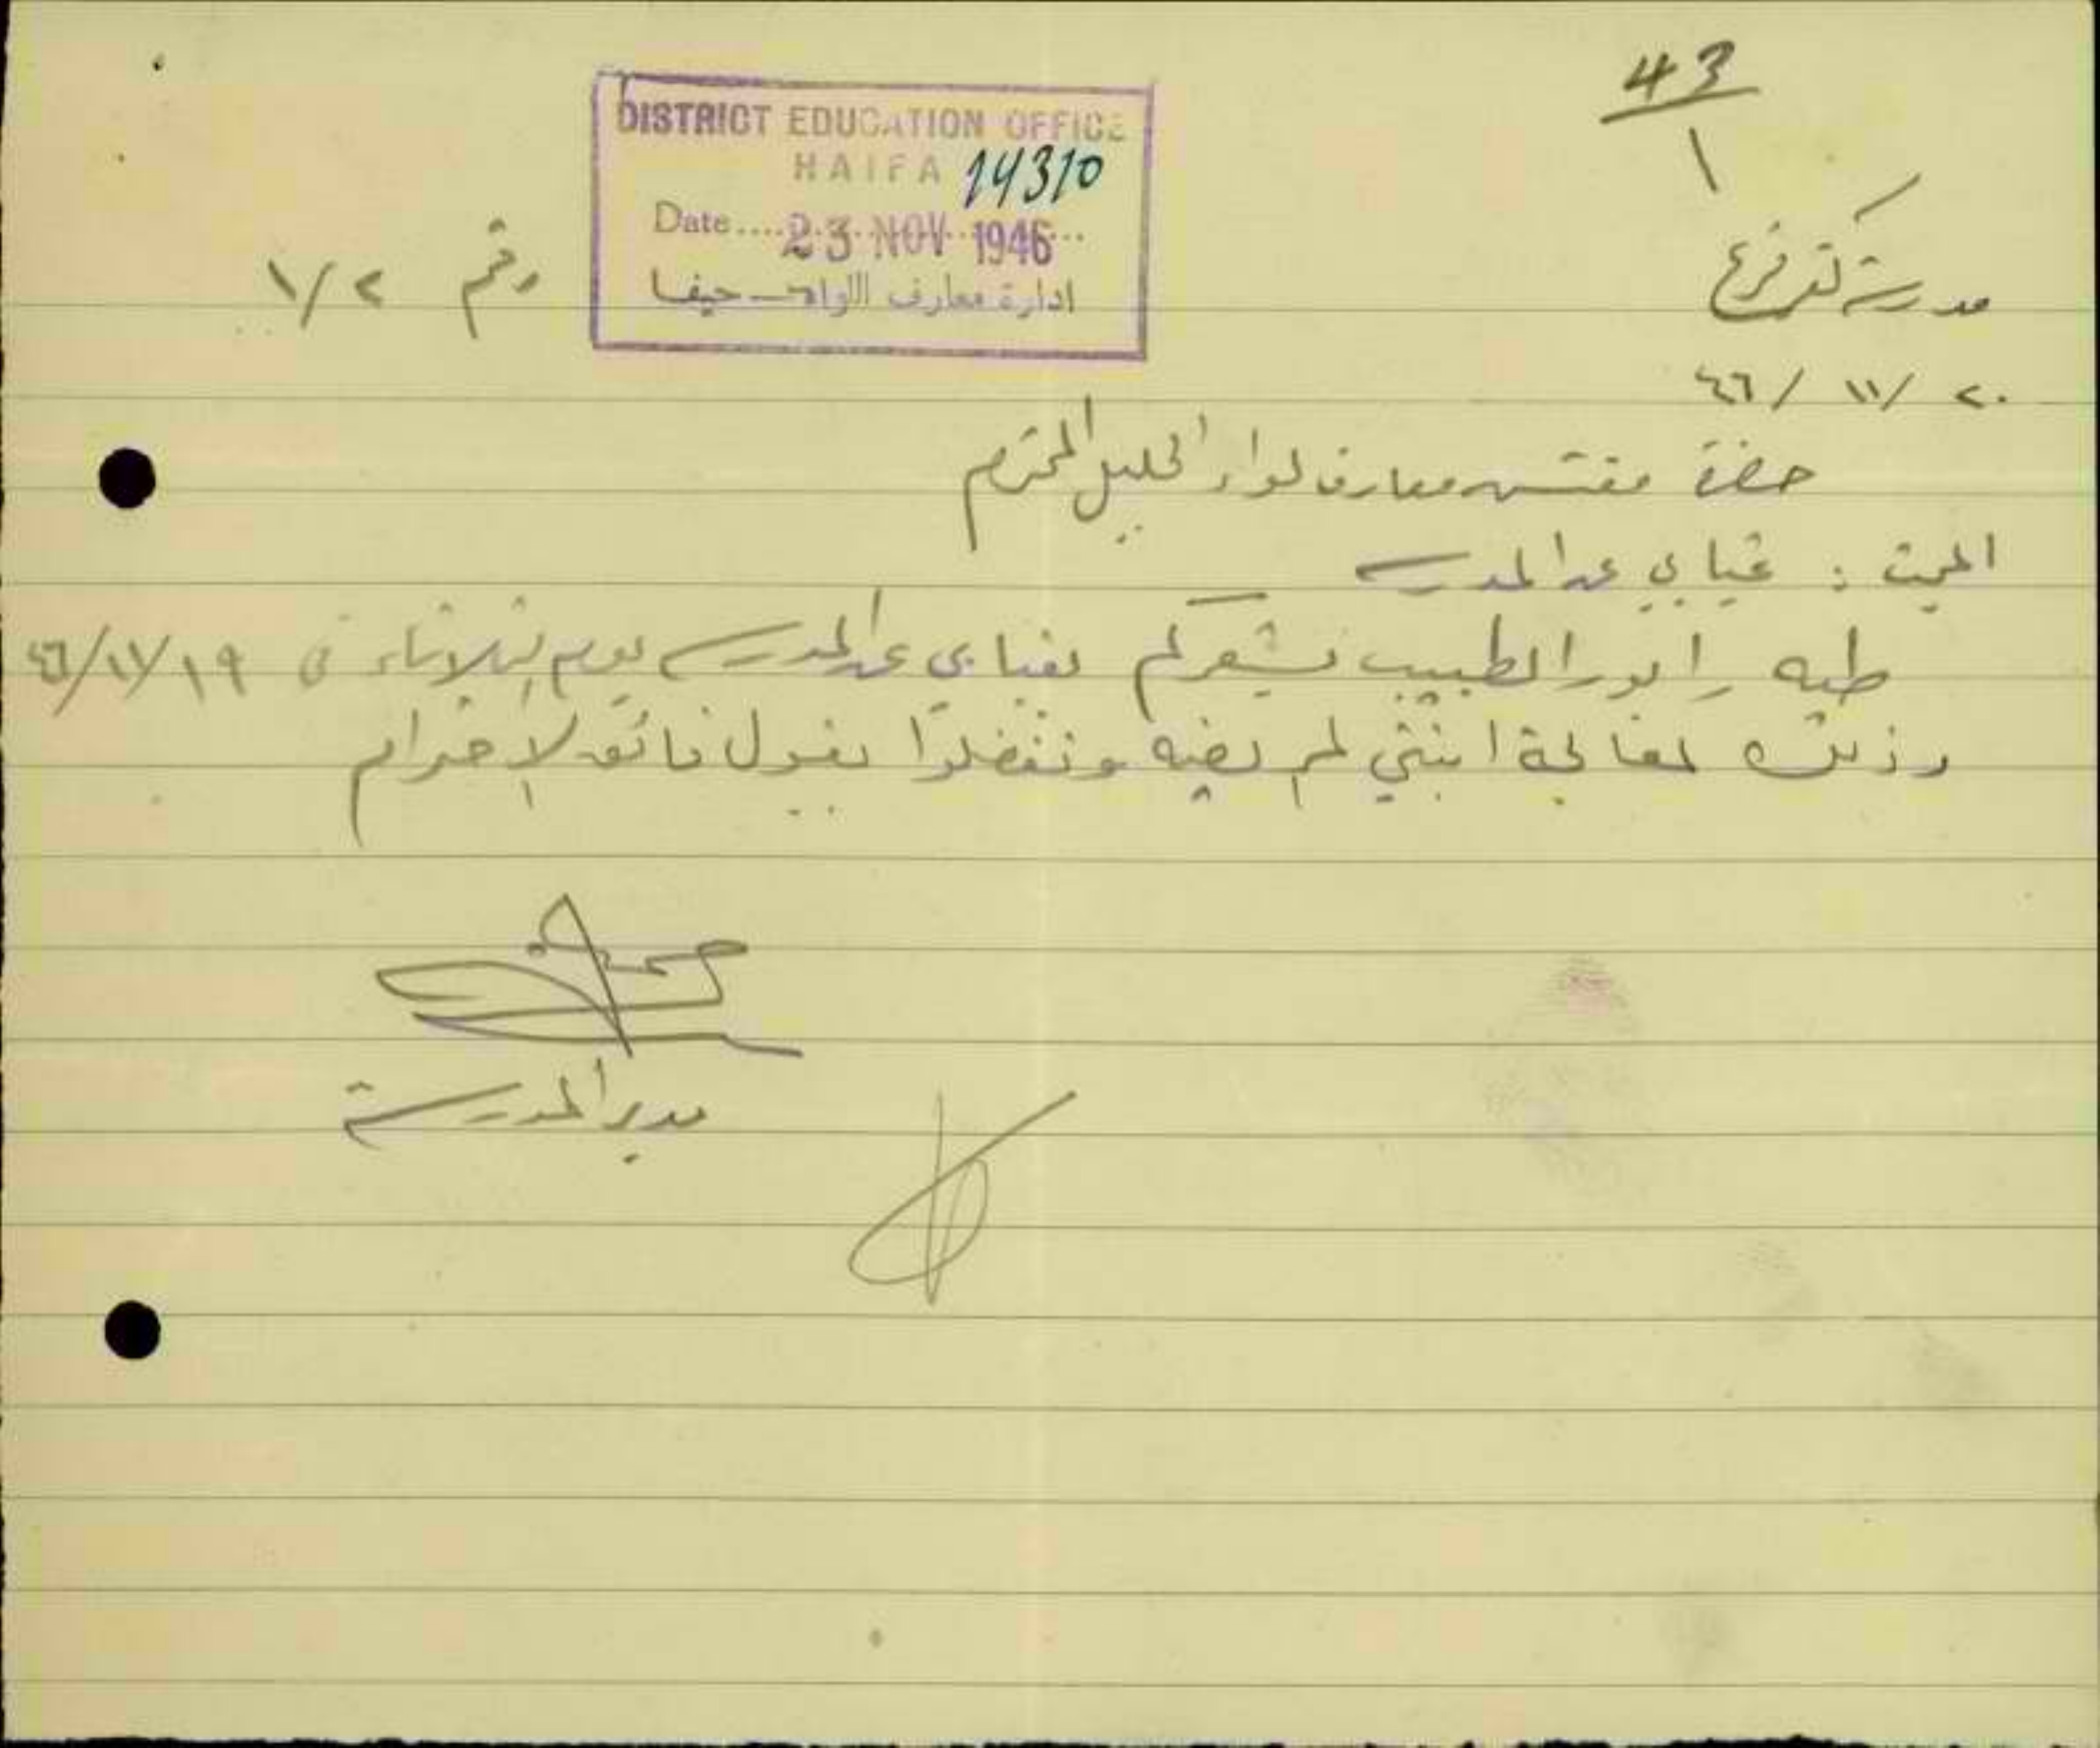 43
١
DISTRICT EDUCATION OFFICE
HAIFA 14310
Date.... 23 NOV 1946 ...
ادارة معارف اللواء - حيفا
مدرسة كفر قرع
رقم ١/٢
٢٠ / ١١ / ٤٦
حضرة مفتش معارف لواء الجليل المحترم
المبحث : غيابي عن المدرسة
طيه رابور الطبيب يشعركم بغيابي عن المدرسة يوم الثلاثاء في ١٩/١١/٤٦
وذلك لمعالجة ابنتي المريضه وتفضلوا بقبول فائق الاحترام
مدير المدرسة